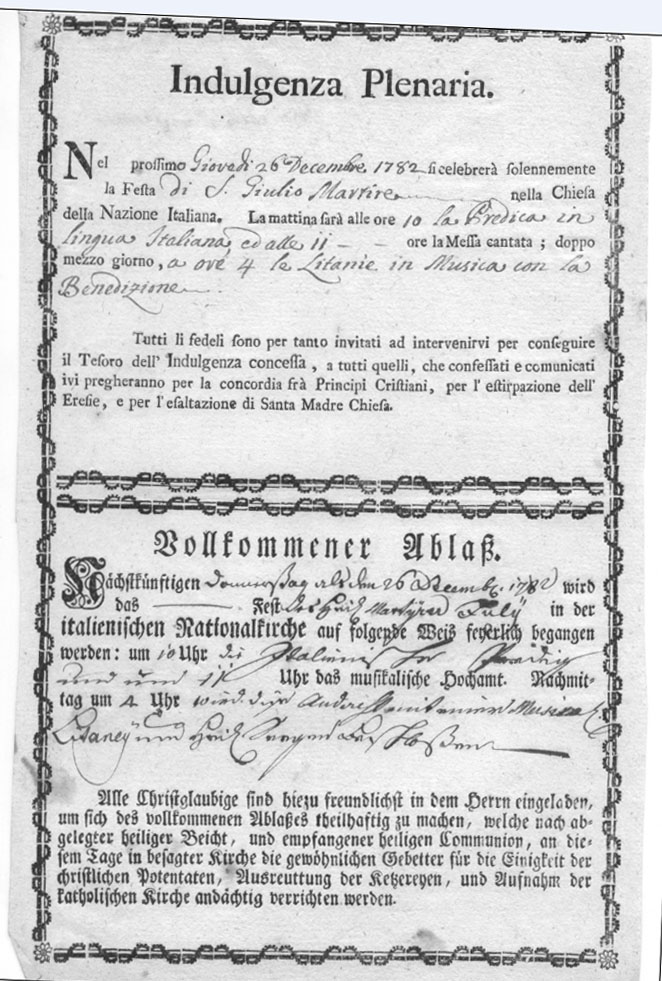 Indulgenza Plenaria.
Nel prossimo Giovedi 26 Decembre 1782 si celebrerà solennemente
la Festa di S. Giulio Martire nella Chiesa
della Nazione Italiana. La mattina sarà alle ore 10 la Predica in
lingua Italiana, ed alle 11 - - ore la Messa cantata ; doppo
mezzo giorno, a ore 4 le Litanie in Musica con la
Benedizione
Tutti li fedeli sono per tanto invitati ad intervenirvi per conseguire
il Tesoro dell' Indulgenza concessa, a tutti quelli, che confessati e comunicati
ivi pregheranno per la concordia frà Principi Cristiani, per l' estirpazione dell'
Eresie, e per l' esaltazione di Santa Madre Chiesa.
Vollkommener Ablaß.
Nächstkünftigen Donnerstag als den 26 Decemb. 1782 wird
das Fest des Heil. Martyrer in der
italienischen Nationalkirche auf folgende Weis feyerlich begangen
werden: um 10 Uhr die Italienische Predig
und um 11 Uhr das musikalische Hochamt. Nachmit-
tag um 4 Uhr wird die Andacht mit einer Musical.
Litaney und Heil. Seegen beschlossen
Alle Christglaubige sind hiezu freundlichst in dem Herrn eingeladen,
um sich des vollkommenen Ablaßes theilhaftig zu machen, welche nach ab-
gelegter heiliger Beicht, und empfangener heiligen Communion, an die-
sem Tage in besagter Kirche die gewöhnlichen Gebetter für die Einigkeit der
christlichen Potentaten, Ausreuttung der Ketzereyen, und Aufnahm der
katholischen Kirche andächtig verrichten werden.